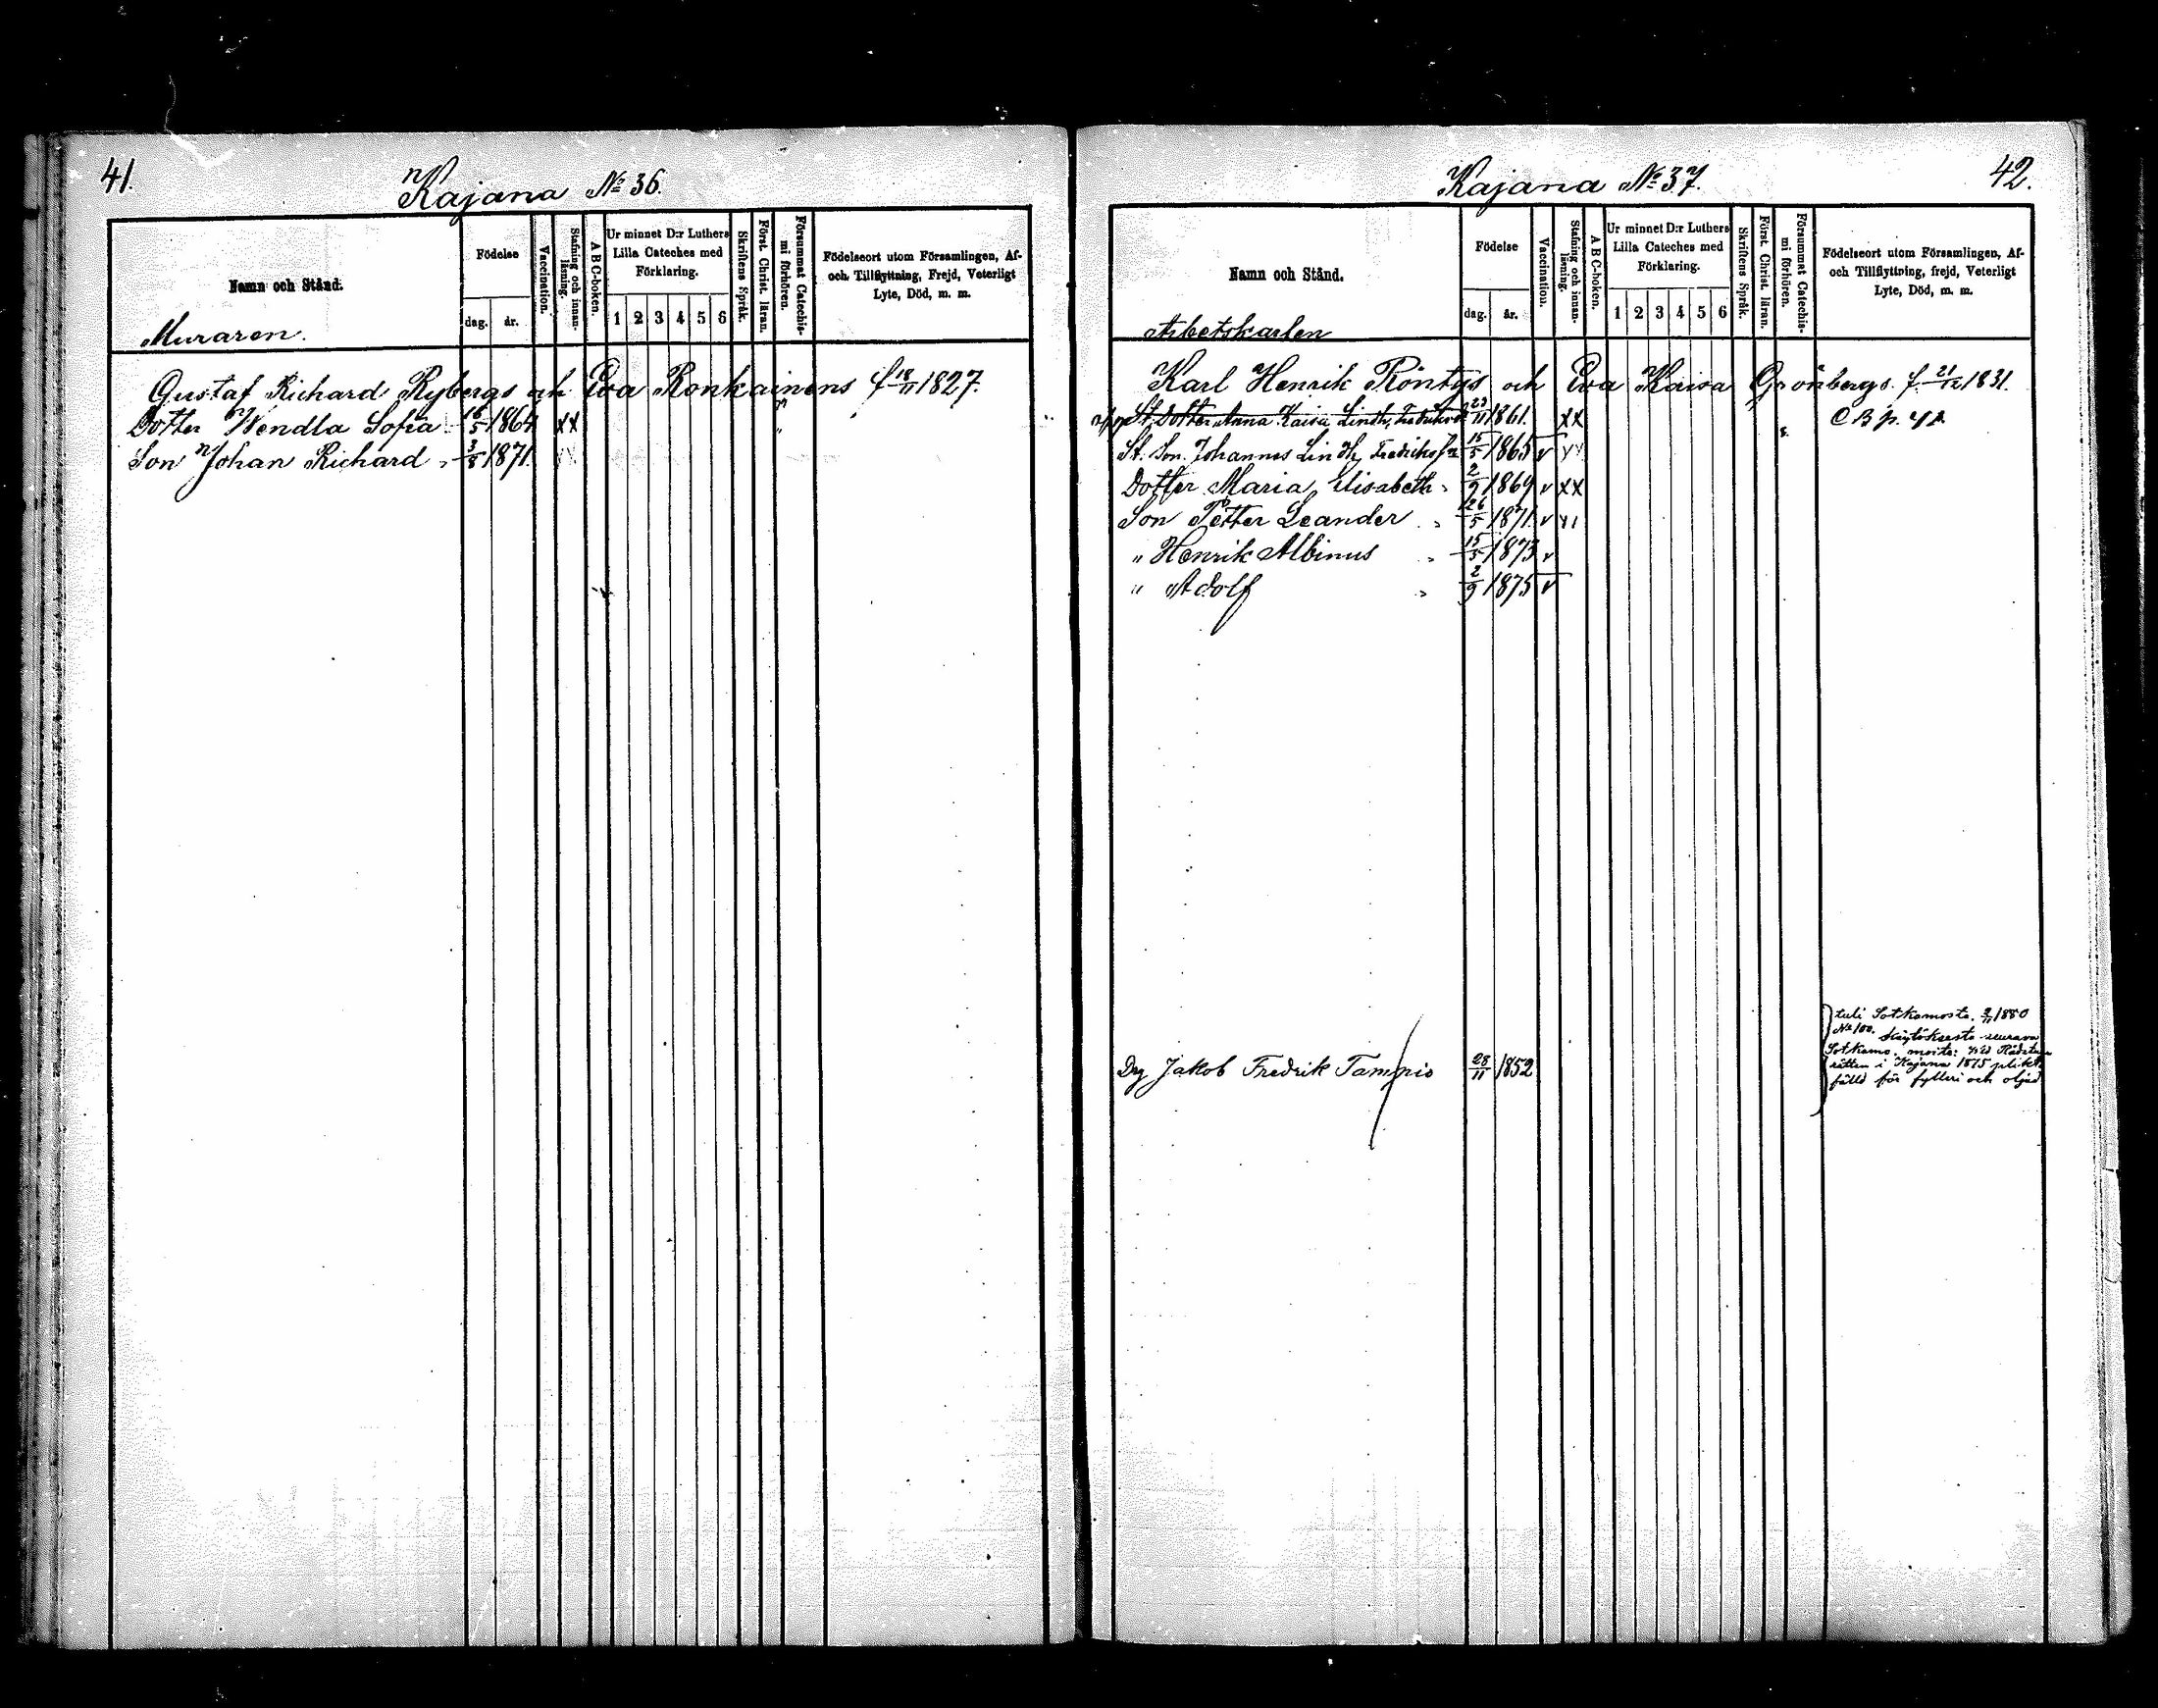 41.
Kajana № 36.
Namn och Stånd.
Födelse
dag.
år.
Vaccination.
Stafning och innan-
läsning.
A B C-boken.
Ur minnet D:r Luthers
Lilla Cateches med
Förklaring.
1 2 3 4 5 6
Skriftens Språk.
Först. Christ. läran.
Försummat Catechis-
mi förhören.
Födelseort utom Församlingen, Af-
och Tillflyttning, Frejd, Veterligt
Lyte, Död, m. m.
Muraren.
Gustaf Richard Rybergs och Eva Ronkainens f 18/11 1827.
Dotter Wendla Sofia 16/5 1864 XX
Son Johan Richard 3/8 1871.
Kajana № 37.
42.
Namn och Stånd.
Födelse
dag.
år.
Vaccination.
Stafning och innan-
läsning.
A B C-boken.
Ur minnet D:r Luthers
Lilla Cateches med
Förklaring.
1 2 3 4 5 6
Skriftens Språk.
Först. Christ. läran.
Försummat Catechis-
mi förhören.
Födelseort utom Församlingen, Af-
och Tillflyttning, frejd, Veterligt
Lyte, Död, m. m.
Arbetskarlen
Karl Henrik Röntys och Eva Kaisa Grönbergs. f 21/12 1831.
St. Dotter Anna Kaisa Lindh, 23/11 1861. XX C B p.
St. Son. Johannes Lindh, Fredriksson 15/5 1865 v
Dotter Maria Elisabeth 2/9 1869 v XX
Son Petter Leander 26/5 1871 v
" Henrik Albinus 15/5 1873 v
" Adolf 2/9 1875 v
Drg Jakob Fredrik Tammio 28/11 1852
tuli Sotkamosta. 2/11 1880
№ 100. Käytöksestä seuraava
Sotkamo muist: vid Rådstufvu
rätten i Kajana 1875 plikt
fälld för fylleri och oljud